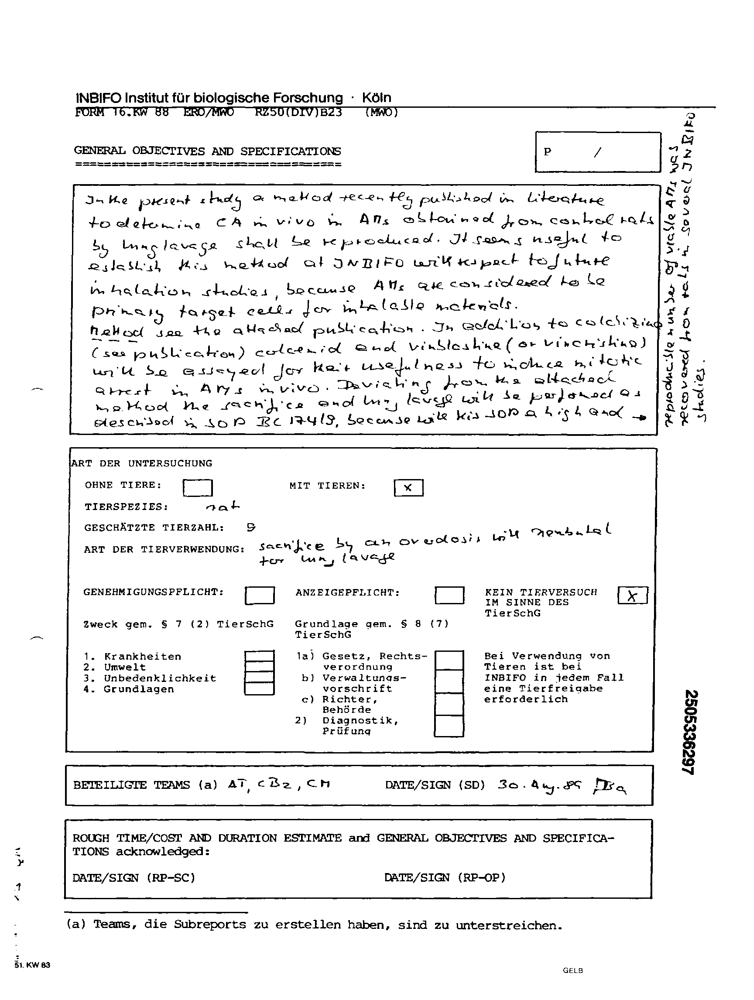 INBIFO Institut für biologische Forschung · Köln
FORM 16.KW 88 ERO/MWO RZ50(DIV)B23 (MWO)
GENERAL OBJECTIVES AND SPECIFICATIONS
P /
In the present study a method recently published in literature
to determine CA in vivo in AMs obtained from control rats
by lung lavage shall be reproduced. It seems useful to
establish this method at INBIFO with respect to future
inhalation studies, because AMs are considered to be
primary target cells for inhalable materials.
Method see the attached publication. In addition to colchizine
(see publication) colcemid and vinblastine (or vinchristine)
will be assayed for their usefulness to induce mitotic
arrest in AMs in vivo. Deviating from the attached
method the sacrifice and lung lavage will be performed as
described in SOP BC 17419, because with this SOP a high and →
reproducible number of viable AMs was
recovered from rats in several INBIFO
studies.
ART DER UNTERSUCHUNG
OHNE TIERE: MIT TIEREN: x
TIERSPEZIES: rat
GESCHÄTZTE TIERZAHL: 9
ART DER TIERVERWENDUNG: sacrifice by an overdosis with Nembutal
for lung lavage
GENEHMIGUNGSPFLICHT: ANZEIGEPFLICHT: KEIN TIERVERSUCH X
IM SINNE DES
TierSchG
Zweck gem. § 7 (2) TierSchG Grundlage gem. § 8 (7)
TierSchG
1. Krankheiten 1a) Gesetz, Rechts- Bei Verwendung von
2. Umwelt verordnung Tieren ist bei
3. Unbedenklichkeit b) Verwaltungs- INBIFO in jedem Fall
4. Grundlagen vorschrift eine Tierfreigabe
c) Richter, erforderlich
Behörde
2) Diagnostik,
Prüfung
2505336297
BETEILIGTE TEAMS (a) AT, CB2, CM DATE/SIGN (SD) 30. Aug. 89
ROUGH TIME/COST AND DURATION ESTIMATE and GENERAL OBJECTIVES AND SPECIFICA-
TIONS acknowledged:
DATE/SIGN (RP-SC) DATE/SIGN (RP-OP)
(a) Teams, die Subreports zu erstellen haben, sind zu unterstreichen.
51. KW 83
GELB